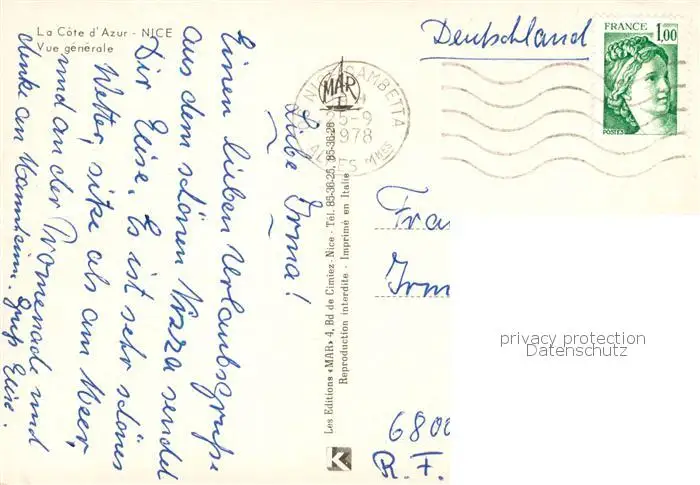 La Côte d'Azur - NICE
Vue générale
Liebe Irma!
Einen lieben Urlaubsgruß
aus dem schönen Nizza sendet
Dir Elise. Es ist sehr schönes
Wetter, sitze als am Meer
und an der Promenade und
denke an Mannheim. Gruß Elise.
Les Editions «MAR» 4, Bd de Cimiez - Nice - Tél. 85-36-25, 85-36-26
Reproduction interdite - Imprimé en Italie
MAR
NICE GAMBETTA
25-9
1978
ALPES Mmes
Deutschland
FRANCE
1,00
POSTES
Fra
Irm
privacy protection
Datenschutz
6800
R. F.
K